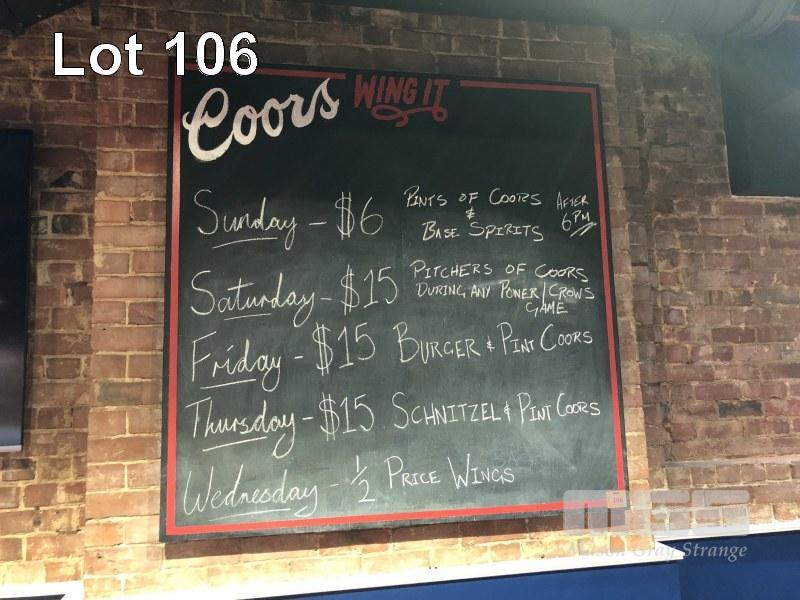 Lot 106
Coors WING IT
Sunday - $6 PINTS OF COORS & BASE SPIRITS AFTER 6PM
Saturday - $15 PITCHERS OF COORS DURING ANY POWER/CROWS GAME
Friday - $15 BURGER & PINT COORS
Thursday - $15 SCHNITZEL & PINT COORS
Wednesday - ½ PRICE WINGS
MGS
Mason Gray Strange